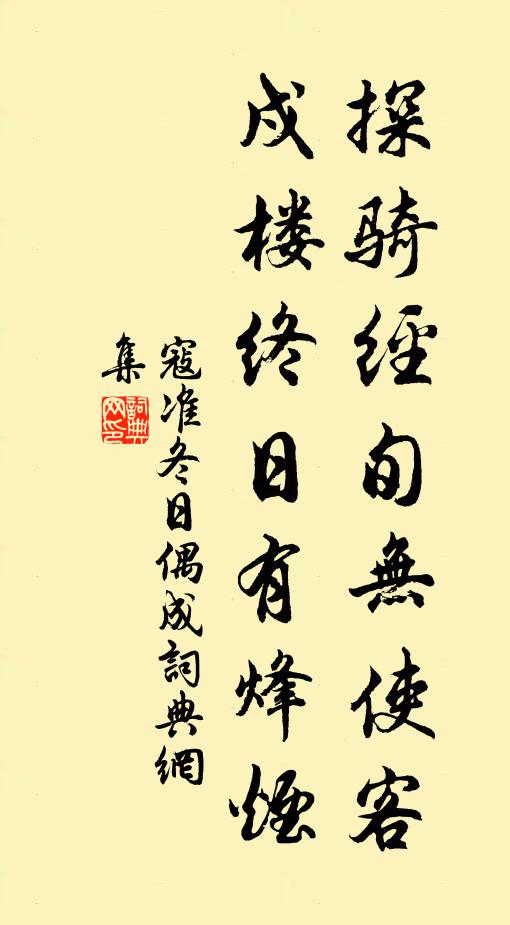 探骑經旬無使客
戍楼终日有烽煙
寇准冬日偶成詞典網
集
詞典
网印